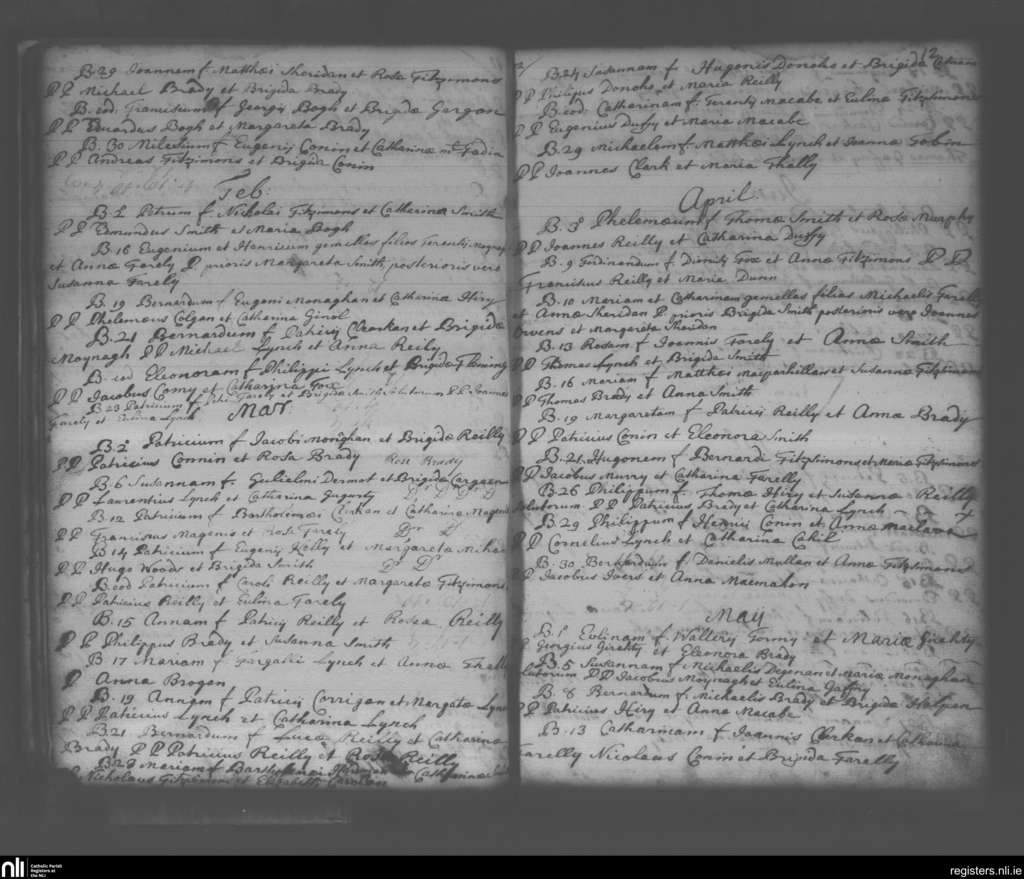 B. 29 Joannem f. Matthæi Sheridan et Rosa Fitzsimons
P P Michael Brady et Brigida Brady
B. eod. Franciscum f. Georgii Bogh et Brigidæ Gargan
P P Eduardus Bogh et Margareta Brady
B. 30 Milesium f. Eugenii Conin et Catharinæ
P P Andreas Fitzimons et Brigida Conin
Feb:
Petrum f. Nickolai Fitzimons et Catharinæ Smith
P P Edmundus Smith et Maria Bogh
B 16 Eugenium et Henricum gemellos filios Terentii
et Annæ Farely P. prioris Margareta Smith, posterioris vero
Susanna Farely
B. 19 Bernardum f. Eugenii Monaghan et Catharina Hiry
P P Phelemæus Colgan et Catherina
B. 21 Bernardum f. Patricij et Brigidæ
Moynagh P P Michael Lynch et Anna Reily
B. eod Eleonoram f. Philippi Lynch et Brigidæ Fleming
P P Jacobus Comy et Catharina Fox
B 23 Patricium f. Farely et Brigida Smith P P Joannes
Farely et Eulina Lynch
Mar.
B. 2º Patricium f. Jacobi Monighan et Brigidæ Reilly
P P Patricius Connin et Rosa Brady Rose Brady
B. 6 Susannam f. Gulielmi Dermot et Brigida
P P Laurentius Lynch et Catharina
B. 12 Patricium f. Bartholomæi et Catharina
P P Franciscus Magenis et Rose Farely
B 14 Patricium f. Eugenij Kelly et Margareta
P P Hugo Woods et Brigida Smith
B. eod Patricium f. Caroli Reilly et Margaretæ Fitzsimons
P P Patricius Reilly et Eulina Farely
B. 15 Annam f. Patricij Reilly et Rosea Reilly
P P Philippus Brady et Susanna Smith
B 17 Mariam f. Lynch et Annæ
P Anna Brogan
B. 19 Annam f. Patricij Corrigan et
P P Patricius Lynch et Catharina Lynch
B 21 Bernardum f. Lucæ Reilly et Catharina
Brady P P Patricius Reilly et Rosa Reilly
B 28 Mariam f. Bartholomæi
Nicholaus Fitzsimons et Elizabetha
12
B. 24 Susannam f. Hugonis Donohs et Brigida
P P Philipus Donohs et Maria Reilly
B. eod. Catharinam f. Terentij Macabe et Eulina Fitzsimons
P P Eugenius Duffy et Maria Macabe
B. 29 Michaelem f. Matthæi Lynch et Joanna Tobin
P P Joannes Clark et Maria Thally
April.
B. 3º Phelemæum f. Thomæ Smith et Rosæ Murphy
P P Joannes Reilly et Catharina Duffy
B. 9 Ferdinandum f. Fox et Annæ Fitzimons P P
Franciscus Reilly et Maria Dunn
B. 10 Mariam et Catharinam gemellas filias Michaelis Farelly
et Annæ Sheridan P. prioris Brigida Smith posterioris vero Joannes
Owens et Margareta Sheridan
B. 13 Rosam f. Joannis Farely et Annæ Smith
P P Thomas Lynch et Brigida Smith
B. 16 Mariam f. Matthæi et Susannæ Fitzsimons
P P Thomas Brady et Anna Smith
B. 19 Margaretam f. Patricij Reilly et Annæ Brady
P P Patricius Conin et Eleonora Smith
B. 21. Hugonem f. Bernardi Fitzsimons et Mariæ Fitzsimons
P P Jacobus Murry et Catharina Farelly
B 26 Philippum f. Thomæ Hiry et Susannæ Reilly
solutorum P P Patricius Brady et Catharina Lynch
B. 29 Philippum f. Henrici Conin et Annæ
P P Cornelius Lynch et Catharina Cahil
B. 30 Bernardum f. Danielis Mullan et Annæ Fitzsimons
P P Jacobus Ivers et Anna Macmahon
May
B. 1º f. Walteri et Mariæ
P Georgius et Eleonora Brady
B. 5 Susannam f. Michaelis Degenan et Mariæ Monaghan
solutorum P P Jacobus Moynagh et Eulina
B. 8 Bernardum f. Michaelis Brady et Brigida Halpen
P P Patricius Hiry et Anna Macabe
B. 13 Catharinam f. Joannis Clerkan et Catharina
Farelly Nicolaus Conin et Brigida Farelly
nli
Catholic Parish
Registers at
the NLI
registers.nli.ie